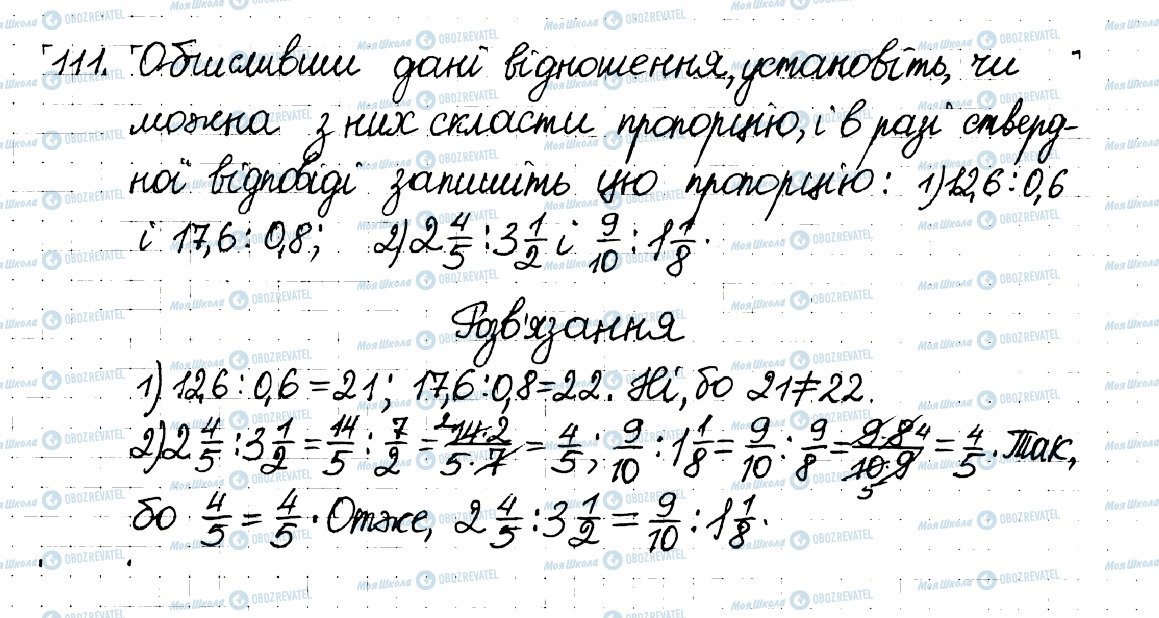 111. Обчисливши дані відношення, установіть, чи
можна з них скласти пропорцію, і в разі стверд-
ної відповіді запишіть цю пропорцію: 1) 12,6 : 0,6
і 17,6 : 0,8; 2) 2 4/5 : 3 1/2 і 9/10 : 1 1/8.
Розв'язання
1) 12,6 : 0,6 = 21; 17,6 : 0,8 = 22. Ні, бо 21 ≠ 22.
2) 2 4/5 : 3 1/2 = 14/5 : 7/2 = 14·2/5·7 = 4/5; 9/10 : 1 1/8 = 9/10 : 9/8 = 9·8/10·9 = 4/5. Так,
бо 4/5 = 4/5. Отже, 2 4/5 : 3 1/2 = 9/10 : 1 1/8.
Моя Школа OBOZREVATEL